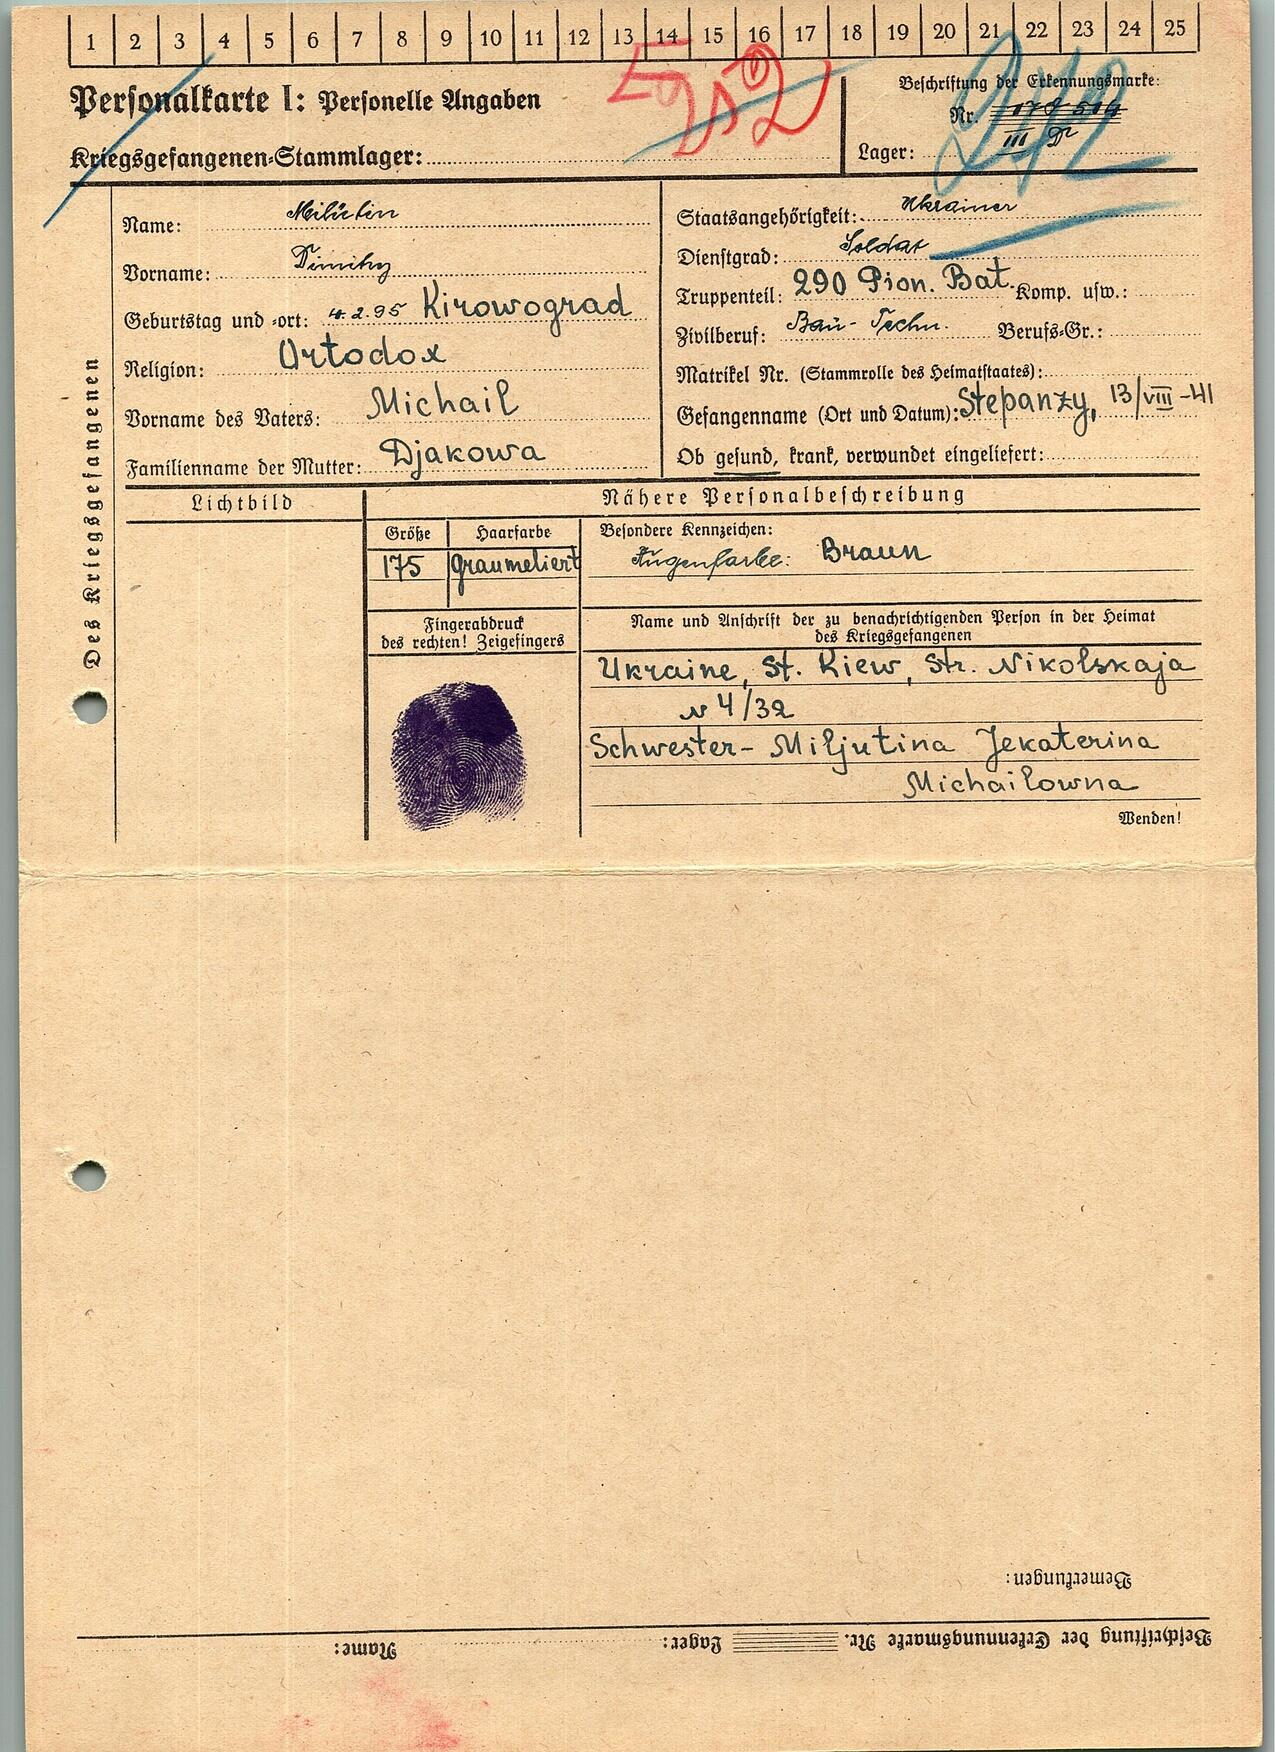 1 2 3 4 5 6 7 8 9 10 11 12 13 14 15 16 17 18 19 20 21 22 23 24 25
Personalkarte I: Personelle Angaben
Kriegsgefangenen-Stammlager:
Beschriftung der Erkennungsmarke:
Nr.
Lager: III D
Des Kriegsgefangenen
Name: Milŭtin
Vorname:
Geburtstag und -ort: 4.2.95 Kirowograd
Religion: Ortodox
Vorname des Vaters: Michail
Familienname der Mutter: Djakowa
Staatsangehörigkeit: Ukrainer
Dienstgrad: Soldat
Truppenteil: 290 Pion. Bat. Komp. usw.:
Zivilberuf: Baŭ-Techn. Berufs-Gr.:
Matrikel Nr. (Stammrolle des Heimatstaates):
Gefangenname (Ort und Datum): Stepanzy, 13/VIII-41
Ob gesund, krank, verwundet eingeliefert:
Lichtbild
Nähere Personalbeschreibung
Größe
175
Haarfarbe
graumeliert
Besondere Kennzeichen:
Augenfarbe: Braun
Fingerabdruck
des rechten! Zeigefingers
Name und Anschrift der zu benachrichtigenden Person in der Heimat
des Kriegsgefangenen
Ukraine, St. Kiew, Str. Nikolskaja
N 4/32
Schwester- Miljutina Jekaterina
Michailowna
Wenden!
Bemerkungen:
Beschriftung der Erkennungsmarke Nr. Lager: Name: